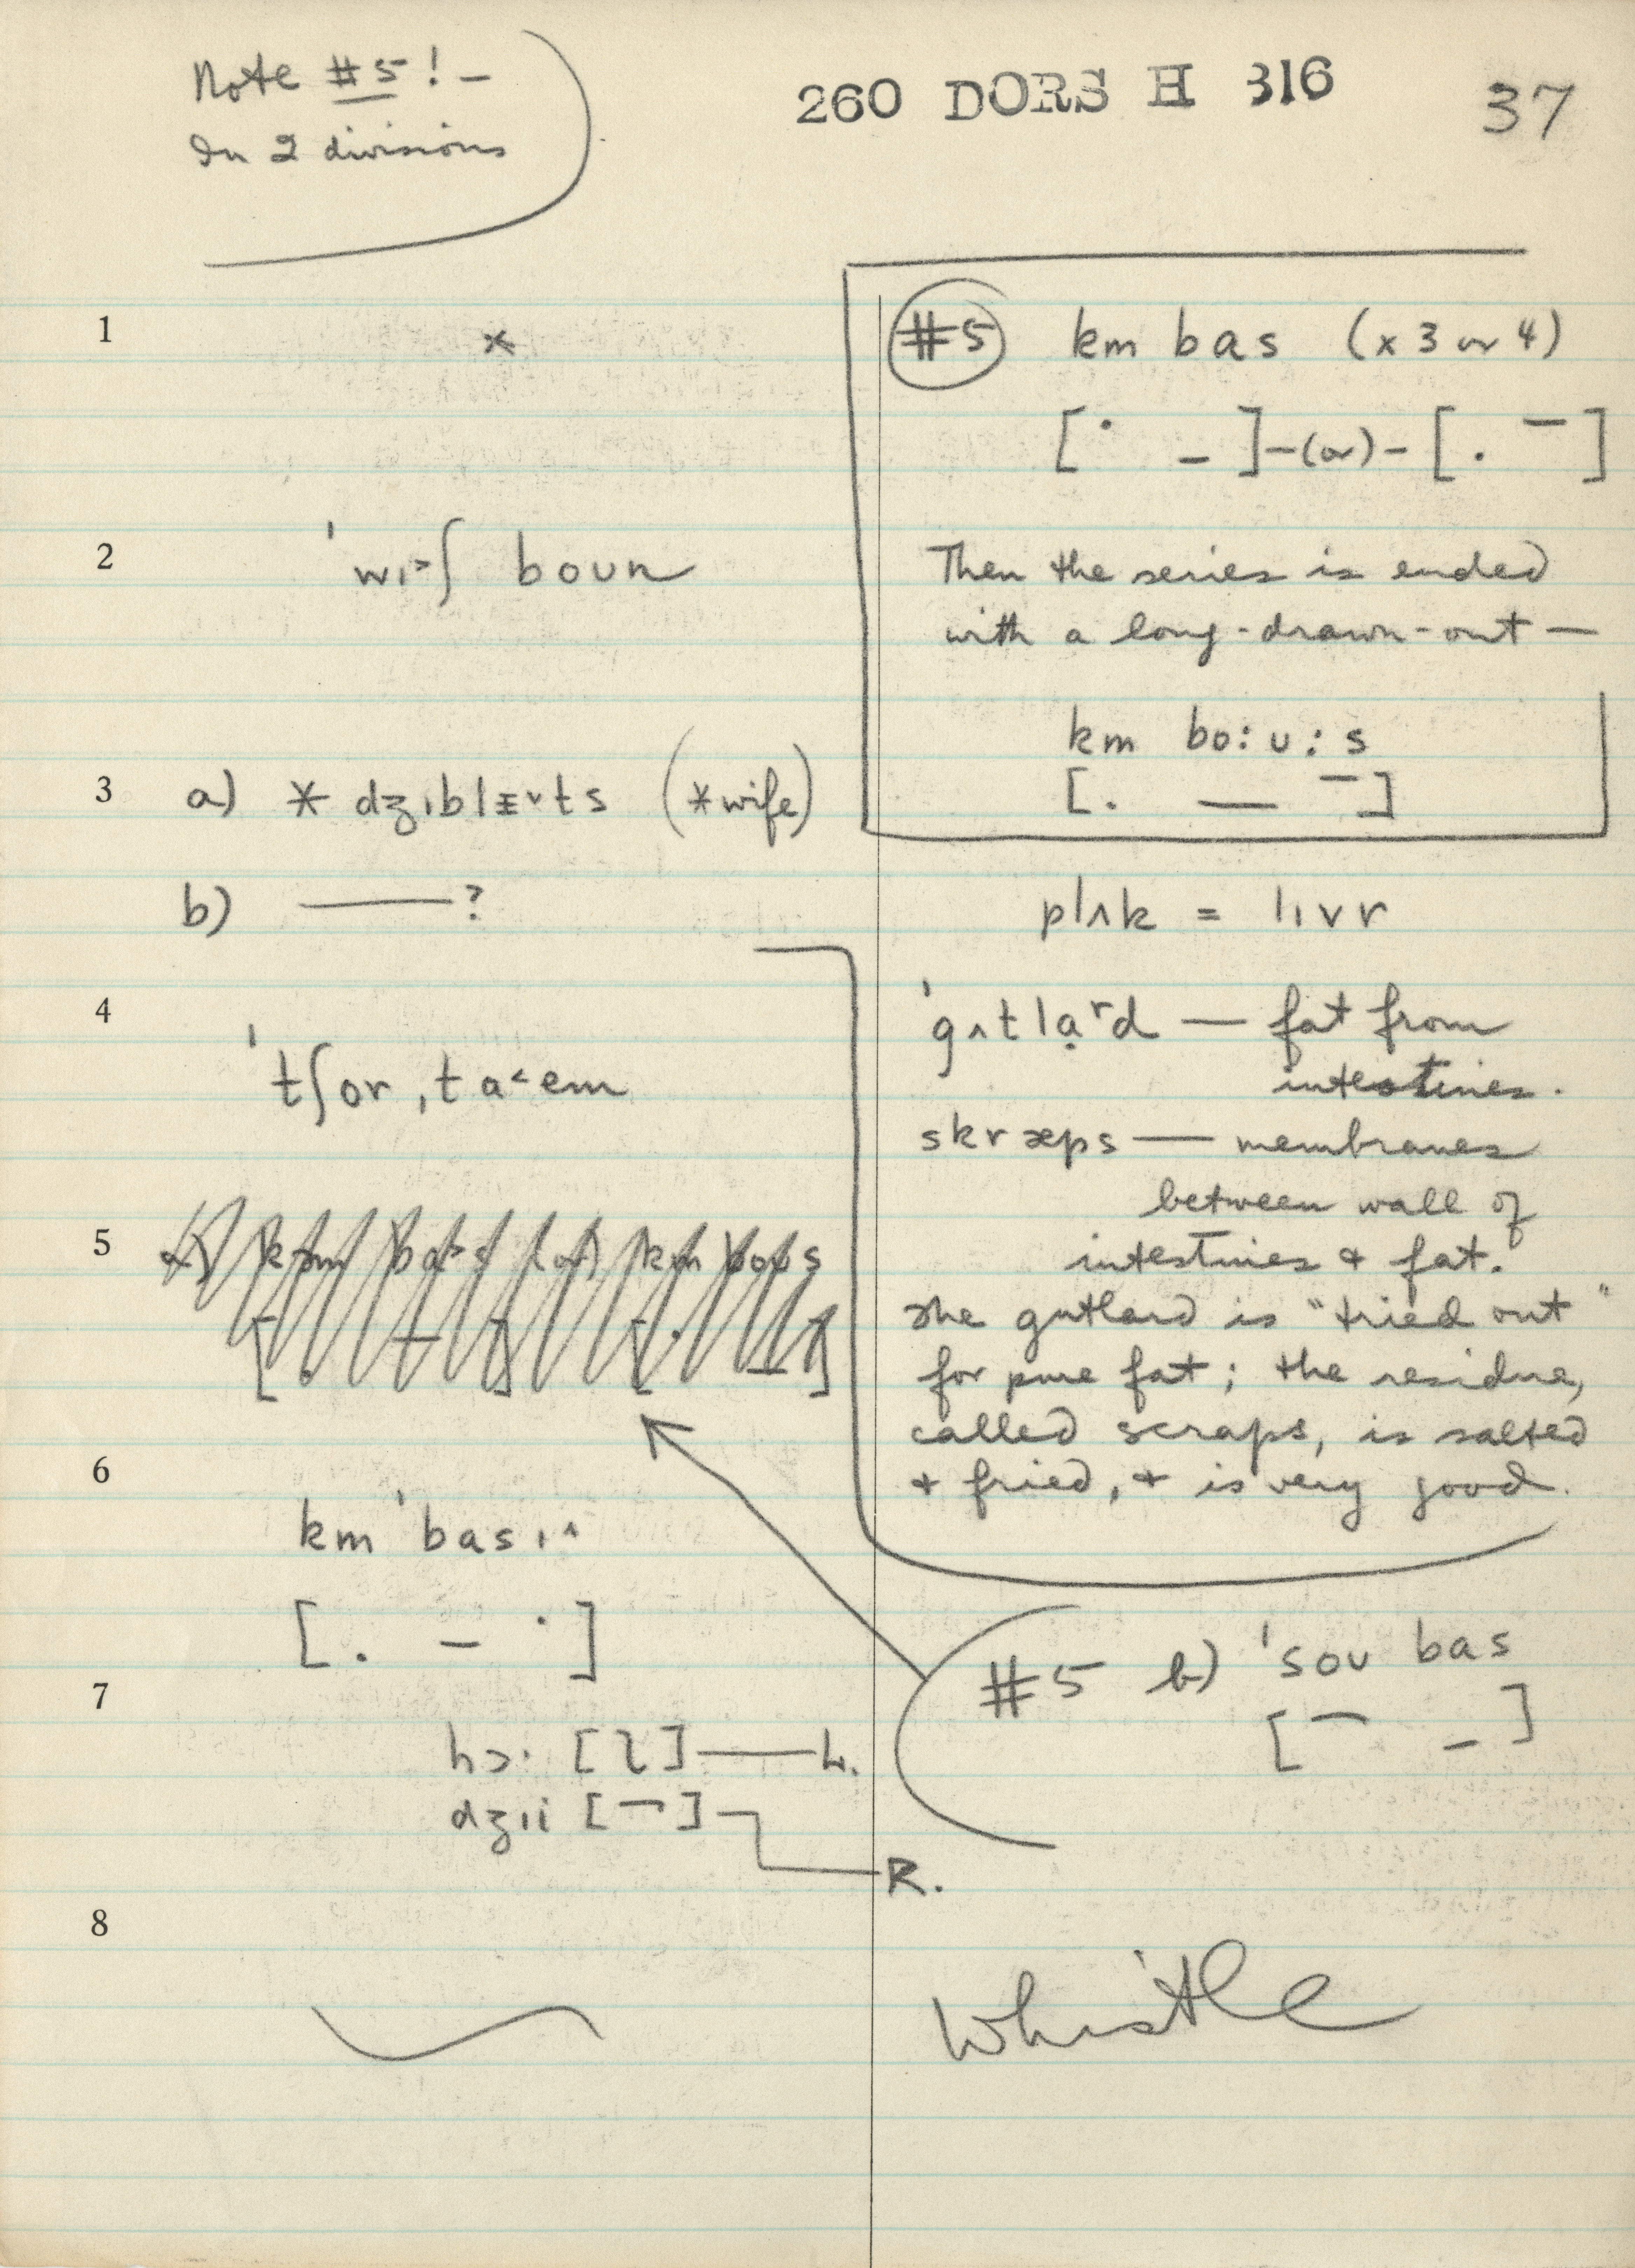 Note #5! –
In 2 divisions
260 DORS H 316
37
1
*
2
ˈwɪ˃ʃ boun
3 a) * dʒɪblᵻᵛts (*wife)
b) ——?
4
ˈtʃor ˌta˂em
5
6
km ˈbasɪ˄
[. – ˙]
7
hɔ· [ ] — L.
dʒɪi [ ] — R.
8
#5 km bas (x 3 or 4)
[˙ _ ] –(or)– [. ¯ ]
Then the series is ended
with a long-drawn-out —
km bo:u:s
[. — ¯]
plʌk = lɪvr
ˈgʌtla̩ʳd — fat from
intestines.
skræps — membranes
between wall of
intestines & fat.
The gutlard is "tried out"
for pure fat; the residue,
called scraps, is salted
& fried, & is very good.
#5 b) ˈsou bas
[¯ _ ]
Whistle